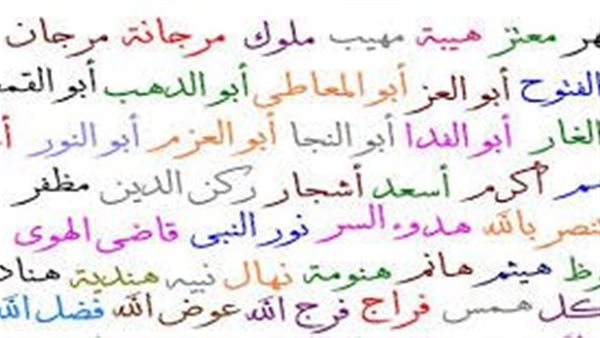 معتز هيبة مهيب ملوك مرجانة مرجان
الفتوح أبو العز أبو المعاطي أبو الدهب أبو
الغار أبو الفدا أبو النجا أبو العزم أبو النور
أكرم أسعد أشجار ركن الدين مظفر
بالله هدوء السر نور النبى قاضى الهوى
هيثم هانم هنومة نهال نبيه هندية
همس فراج فرج الله عوض الله فضل الله